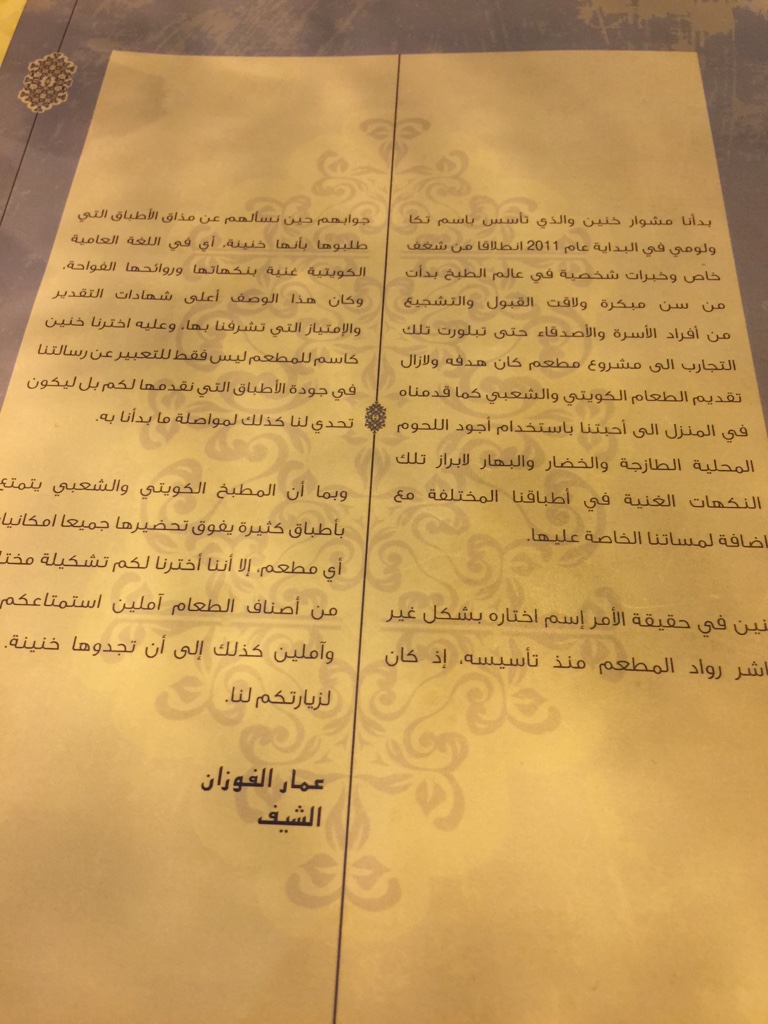 بدأنا مشوار خنين والذي تأسس باسم تكا
ولومي في البداية عام 2011 انطلاقا من شغف
خاص وخبرات شخصية في عالم الطبخ بدأت
من سن مبكرة ولاقت القبول والتشجيع
من أفراد الأسرة والأصدقاء حتى تبلورت تلك
التجارب الى مشروع مطعم كان هدفه ولازال
تقديم الطعام الكويتي والشعبي كما قدمناه
في المنزل الى أحبتنا باستخدام أجود اللحوم
المحلية الطازجة والخضار والبهار لابراز تلك
النكهات الغنية في أطباقنا المختلفة مع
اضافة لمساتنا الخاصة عليها.
في حقيقة الأمر إسم اختاره بشكل غير
رواد المطعم منذ تأسيسه، إذ كان
جوابهم حين نسألهم عن مذاق الأطباق التي
طلبوها بأنها خنينة، أي في اللغة العامية
الكويتية غنية بنكهاتها وروائحها الفواحة،
وكان هذا الوصف أعلى شهادات التقدير
والإمتياز التي تشرفنا بها، وعليه اخترنا خنين
كاسم للمطعم ليس فقط للتعبير عن رسالتنا
في جودة الأطباق التي نقدمها لكم بل ليكون
تحدي لنا كذلك لمواصلة ما بدأنا به.
وبما أن المطبخ الكويتي والشعبي يتمتع
بأطباق كثيرة يفوق تحضيرها جميعا
أي مطعم، إلا أننا أخترنا لكم تشكيلة
من أصناف الطعام آملين استمتاعكم
وآملين كذلك إلى أن تجدوها خنينة.
لزيارتكم لنا.
عمار الفوزان
الشيف